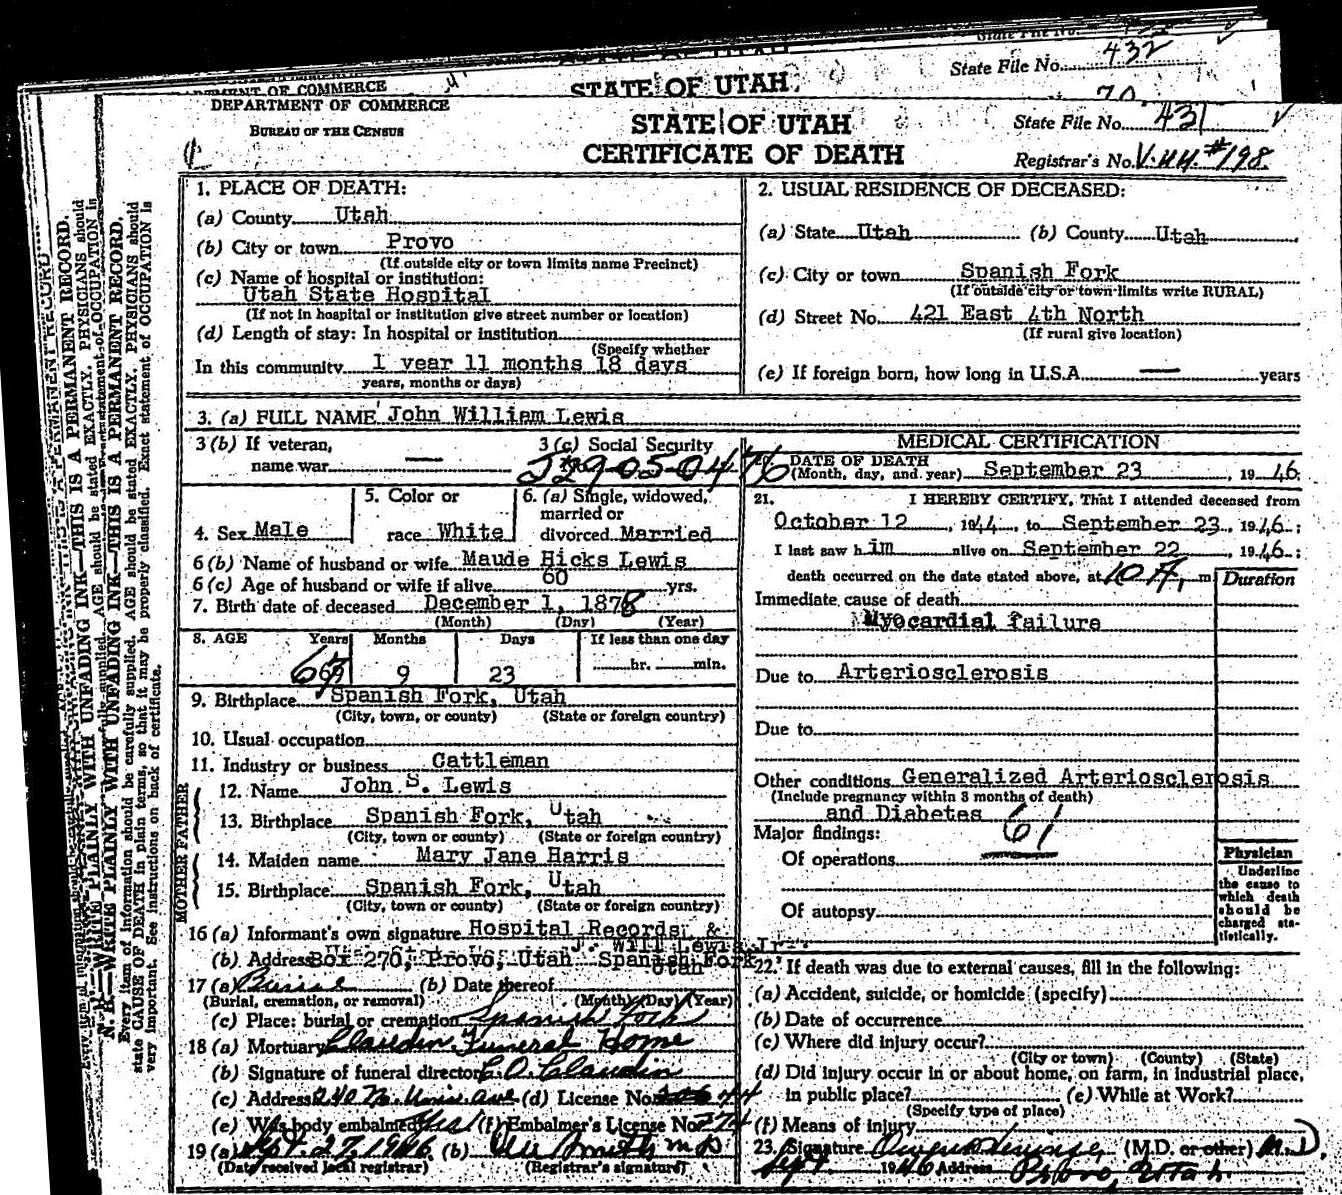 State File No. 432
DEPARTMENT OF COMMERCE
STATE OF UTAH
70
DEPARTMENT OF COMMERCE
BUREAU OF THE CENSUS
STATE OF UTAH
CERTIFICATE OF DEATH
State File No. 431
Registrar's No. V.44.#198
N. B.—WRITE PLAINLY WITH UNFADING INK—THIS IS A PERMANENT RECORD.
Every item of information should be carefully supplied. AGE should be stated EXACTLY. PHYSICIANS should
state CAUSE OF DEATH in plain terms, so that it may be properly classified. Exact statement of OCCUPATION is
very important. See instructions on back of certificate.
1. PLACE OF DEATH:
(a) County Utah
(b) City or town Provo
(If outside city or town limits name Precinct)
(c) Name of hospital or institution:
Utah State Hospital
(If not in hospital or institution give street number or location)
(d) Length of stay: In hospital or institution
(Specify whether
In this community 1 year 11 months 18 days
years, months or days)
2. USUAL RESIDENCE OF DECEASED:
(a) State Utah (b) County Utah
(c) City or town Spanish Fork
(If outside city or town limits write RURAL)
(d) Street No. 421 East 4th North
(If rural give location)
(e) If foreign born, how long in U.S.A. — years
3. (a) FULL NAME John William Lewis
3 (b) If veteran,
name war —
3 (c) Social Security
529-05-0476
4. Sex Male
5. Color or
race White
6. (a) Single, widowed,
married or
divorced Married
6 (b) Name of husband or wife Maude Hicks Lewis
6 (c) Age of husband or wife if alive 60 yrs.
7. Birth date of deceased December 1, 1878
(Month) (Day) (Year)
8. AGE Years Months Days If less than one day
9 23 hr. min.
9. Birthplace Spanish Fork, Utah
(City, town, or county) (State or foreign country)
10. Usual occupation
11. Industry or business Cattleman
FATHER
12. Name John S. Lewis
13. Birthplace Spanish Fork, Utah
(City, town or county) (State or foreign country)
MOTHER
14. Maiden name Mary Jane Harris
15. Birthplace Spanish Fork, Utah
(City, town or county) (State or foreign country)
16 (a) Informant's own signature Hospital Records &
J. Will Lewis Jr.
(b) Address Box 270, Provo, Utah Spanish Fork
Utah
17 (a) Burial (b) Date thereof
(Burial, cremation, or removal) (Month) (Day) (Year)
(c) Place: burial or cremation Spanish Fork
18 (a) Mortuary Claudin Funeral Home
(b) Signature of funeral director C.O. Claudin
(c) Address 240 N. Univ. ave (d) License No.
(e) Was body embalmed Yes (f) Embalmer's License No. 274
19 (a) Sept. 27, 1946 (b) Smith M D
(Date received local registrar) (Registrar's signature)
MEDICAL CERTIFICATION
DATE OF DEATH
(Month, day, and year) September 23, 1946
21. I HEREBY CERTIFY, That I attended deceased from
October 12, 1944, to September 23, 1946;
I last saw him alive on September 22, 1946;
death occurred on the date stated above, at 10 A, m
Duration
Immediate cause of death
Myocardial failure
Due to Arteriosclerosis
Due to
Other conditions Generalized Arteriosclerosis
(Include pregnancy within 3 months of death)
and Diabetes
61
Major findings:
Of operations
Of autopsy
Physician
Underline
the cause to
which death
should be
charged sta-
tistically.
22. If death was due to external causes, fill in the following:
(a) Accident, suicide, or homicide (specify)
(b) Date of occurrence
(c) Where did injury occur?
(City or town) (County) (State)
(d) Did injury occur in or about home, on farm, in industrial place,
in public place? (e) While at Work?
(Specify type of place)
(f) Means of injury
23. Signature (M.D. or other) M.D.
Sept. 1946 Address Provo, Utah